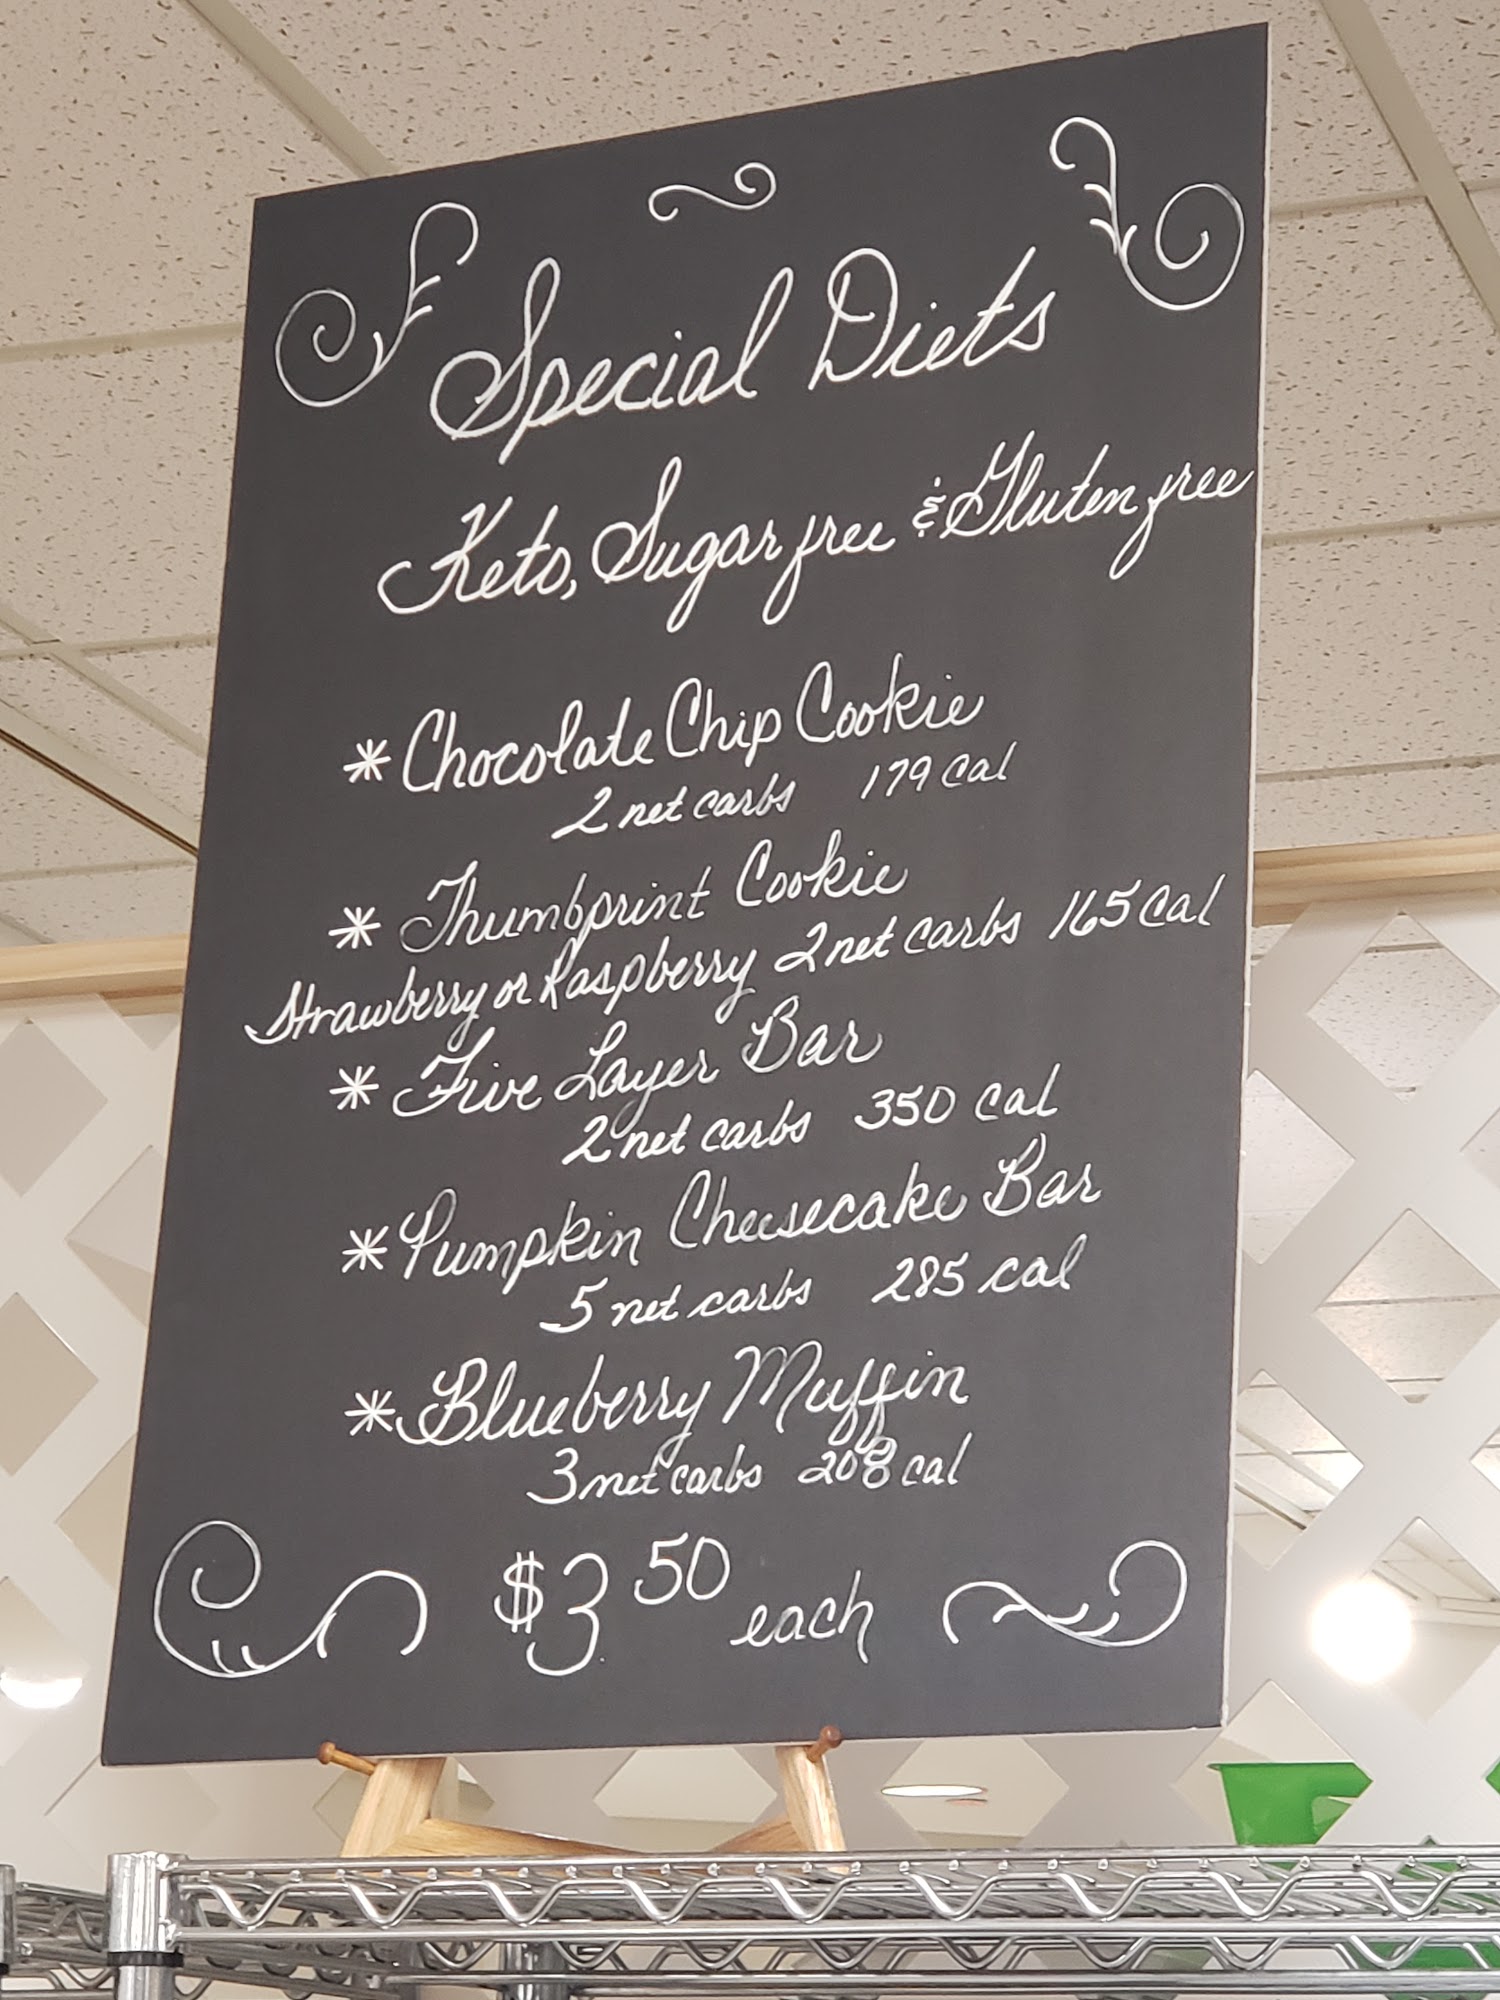 Special Diets
Keto, Sugar free & Gluten free
* Chocolate Chip Cookie
2 net carbs 179 Cal
* Thumbprint Cookie
Strawberry or Raspberry 2 net carbs 165 Cal
* Five Layer Bar
2 net carbs 350 Cal
* Pumpkin Cheesecake Bar
5 net carbs 285 cal
* Blueberry Muffin
3 net carbs 208 cal
$3.50 each